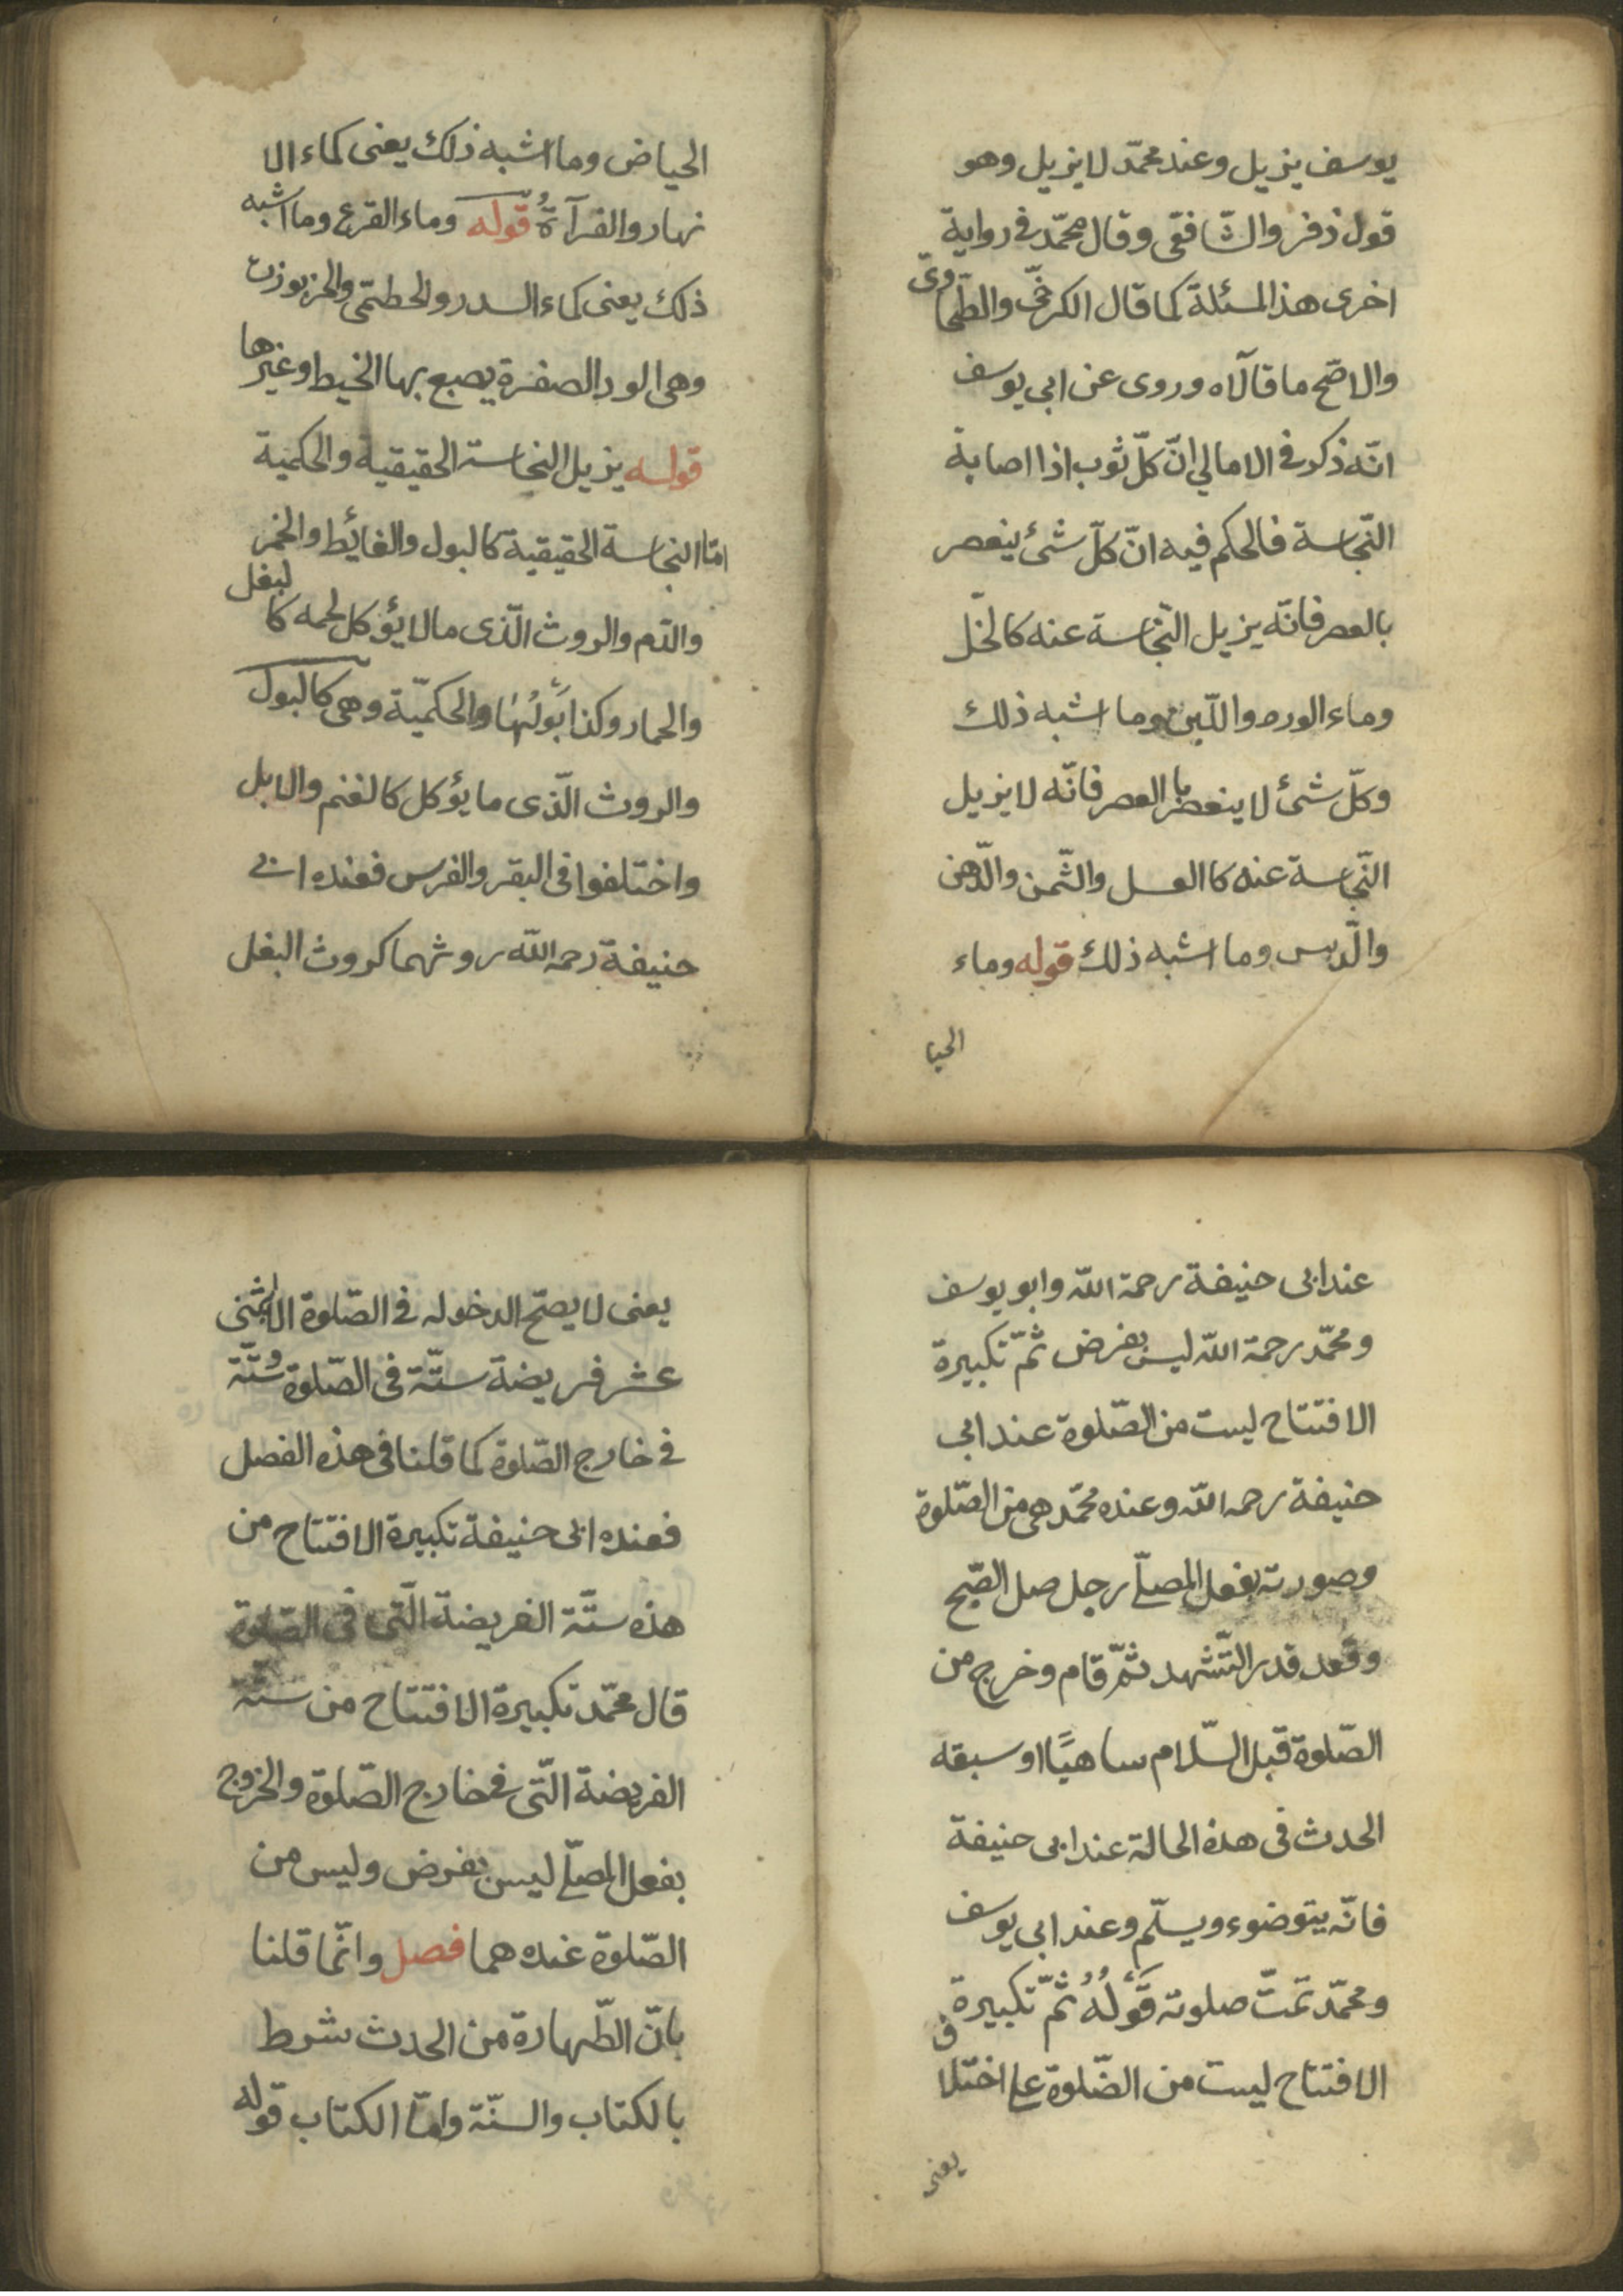 يوسف يزيل وعند محمّد لا يزيل وهو
قول زفر والشّافعّى وقال محمّد فى رواية
اخرى هذا المسئلة كما قال الكرخّى والطّحاوىّ
والاصّح ما قالاه وروى عن ابى يوسف
انّه ذكر فى الامالي انّ كلّ ثوب اذا اصابة
النّجاسة فالحكم فيه انّ كلّ شئ ينعصر
بالعصر فانّه يزيل النّجاسة عنه كالخلّ
وماء الورد واللّبن وما اشبه ذلك
وكلّ شئ لا ينعصر با العصر فانّه لا يزيل
النّجاسة عنه كا العسل والثّمن والدّهن
والدّبس وما اشبه ذلك قوله وماء
الحيا
الحياض وما اشبه ذلك يعنى كماء الا
نهار والقرآة قوله وماء القرع وما اشبه
ذلك يعنى كماء السدر والحطتمى
وهى الورد الصفرة يصبع بها الخيط وغيرها
قوله يزيل النجاسة الحقيقية والحكمية
امّا النجاسة الحقيقية كالبول والغائط والخمر
والدّم والروث الّذى مالا يؤكل لحمه كا لبغل
والحمار وكذا بولُها والحكميّة وهى كالبول
والروث الّذى ما يؤكل كالغنم والابل
واختلفوا فى البقر والفرس فعنده ابى
حنيفة رحمه اللّه روثهما كروث البغل
عند ابى حنيفة رحمة اللّه وابو يوسف
ومحمّد رحمة اللّه ليس بفرض ثمّ تكبيرة
الافتتاح ليست من الصّلوة عند ابى
حنيفة رحمه اللّه وعنده محمّد هى من الصّلوة
وصورته بفعل المصلّے رجل صل الصّبح
وقعد قدر التّشهد ثمّ قام وخرج من
الصّلوة قبل السّلام ساهيًا او سبقه
الحدث فى هذه الحالة عند ابى حنيفة
فانّه يتوضوء ويسلّم وعند ابى يوسف
ومحمّد تمتّ صلوته قوله ثمّ تكبيرة
الافتتاح ليست من الصّلوة على اختلاف
يعنى
يعنى لا يصحّ الدخوله فى الصّلوة الا باثنى
عشر فريضة ستّة فى الصّلوة وستّة
فى خارج الصّلوة كما قلنا فى هذه الفصل
فعنده ابى حنيفة تكبيرة الافتتاح من
هذه ستّة الفريضة الّتى فى الصّلوة
قال محمّد تكبيرة الافتتاح من ستّة
الفريضة الّتى فى خارج الصّلوة والخروج
بفعل المصلّے ليس بفرض وليس من
الصّلوة عنده هما فصل وانّما قلنا
بانّ الطّهارة من الحدث شرط
بالكتاب والسنّة وامّا الكتاب قوله